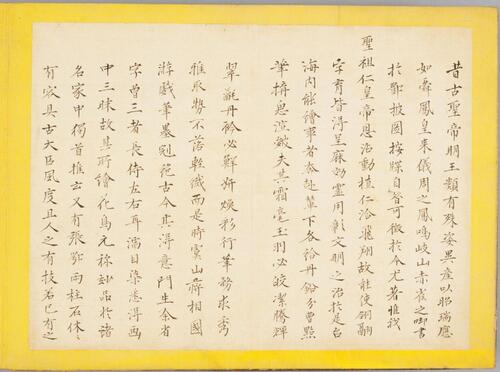 昔古聖帝明王類有殊姿異產以昭瑞應
如舜鳳皇來儀周之鳳鳴岐山赤雀之啣書
於鄷披圖按牒自昔可徵於今尤著惟我
聖祖仁皇帝恩洽動植仁洽飛翔故能使翎翮
字育皆得呈麻効靈用彰文明之治於是召
海內能繪事者齊赴輦下各給丹鉛分曹點
筆摛思渲皴夫其霜毫玉羽必皎潔騰輝
翠氄丹必鮮妍煥彩行筆務求秀
雅取勢不落輕纖而是時虞山蔣相國
游戲筆墨苑古今其得意門生余省
字曾三者長侍左右耳濡目染悉得畫
中三昧故其所繪花鳥尤称妙品於諸
名家中獨首推云又有張鄂兩柱石休々
有容具古大臣風度且人之有技若己有之